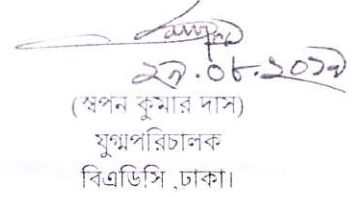 ২৭.০৮.২০১৭
(স্বপন কুমার দাস)
যুগ্মপরিচালক
বিএডিসি ,ঢাকা।